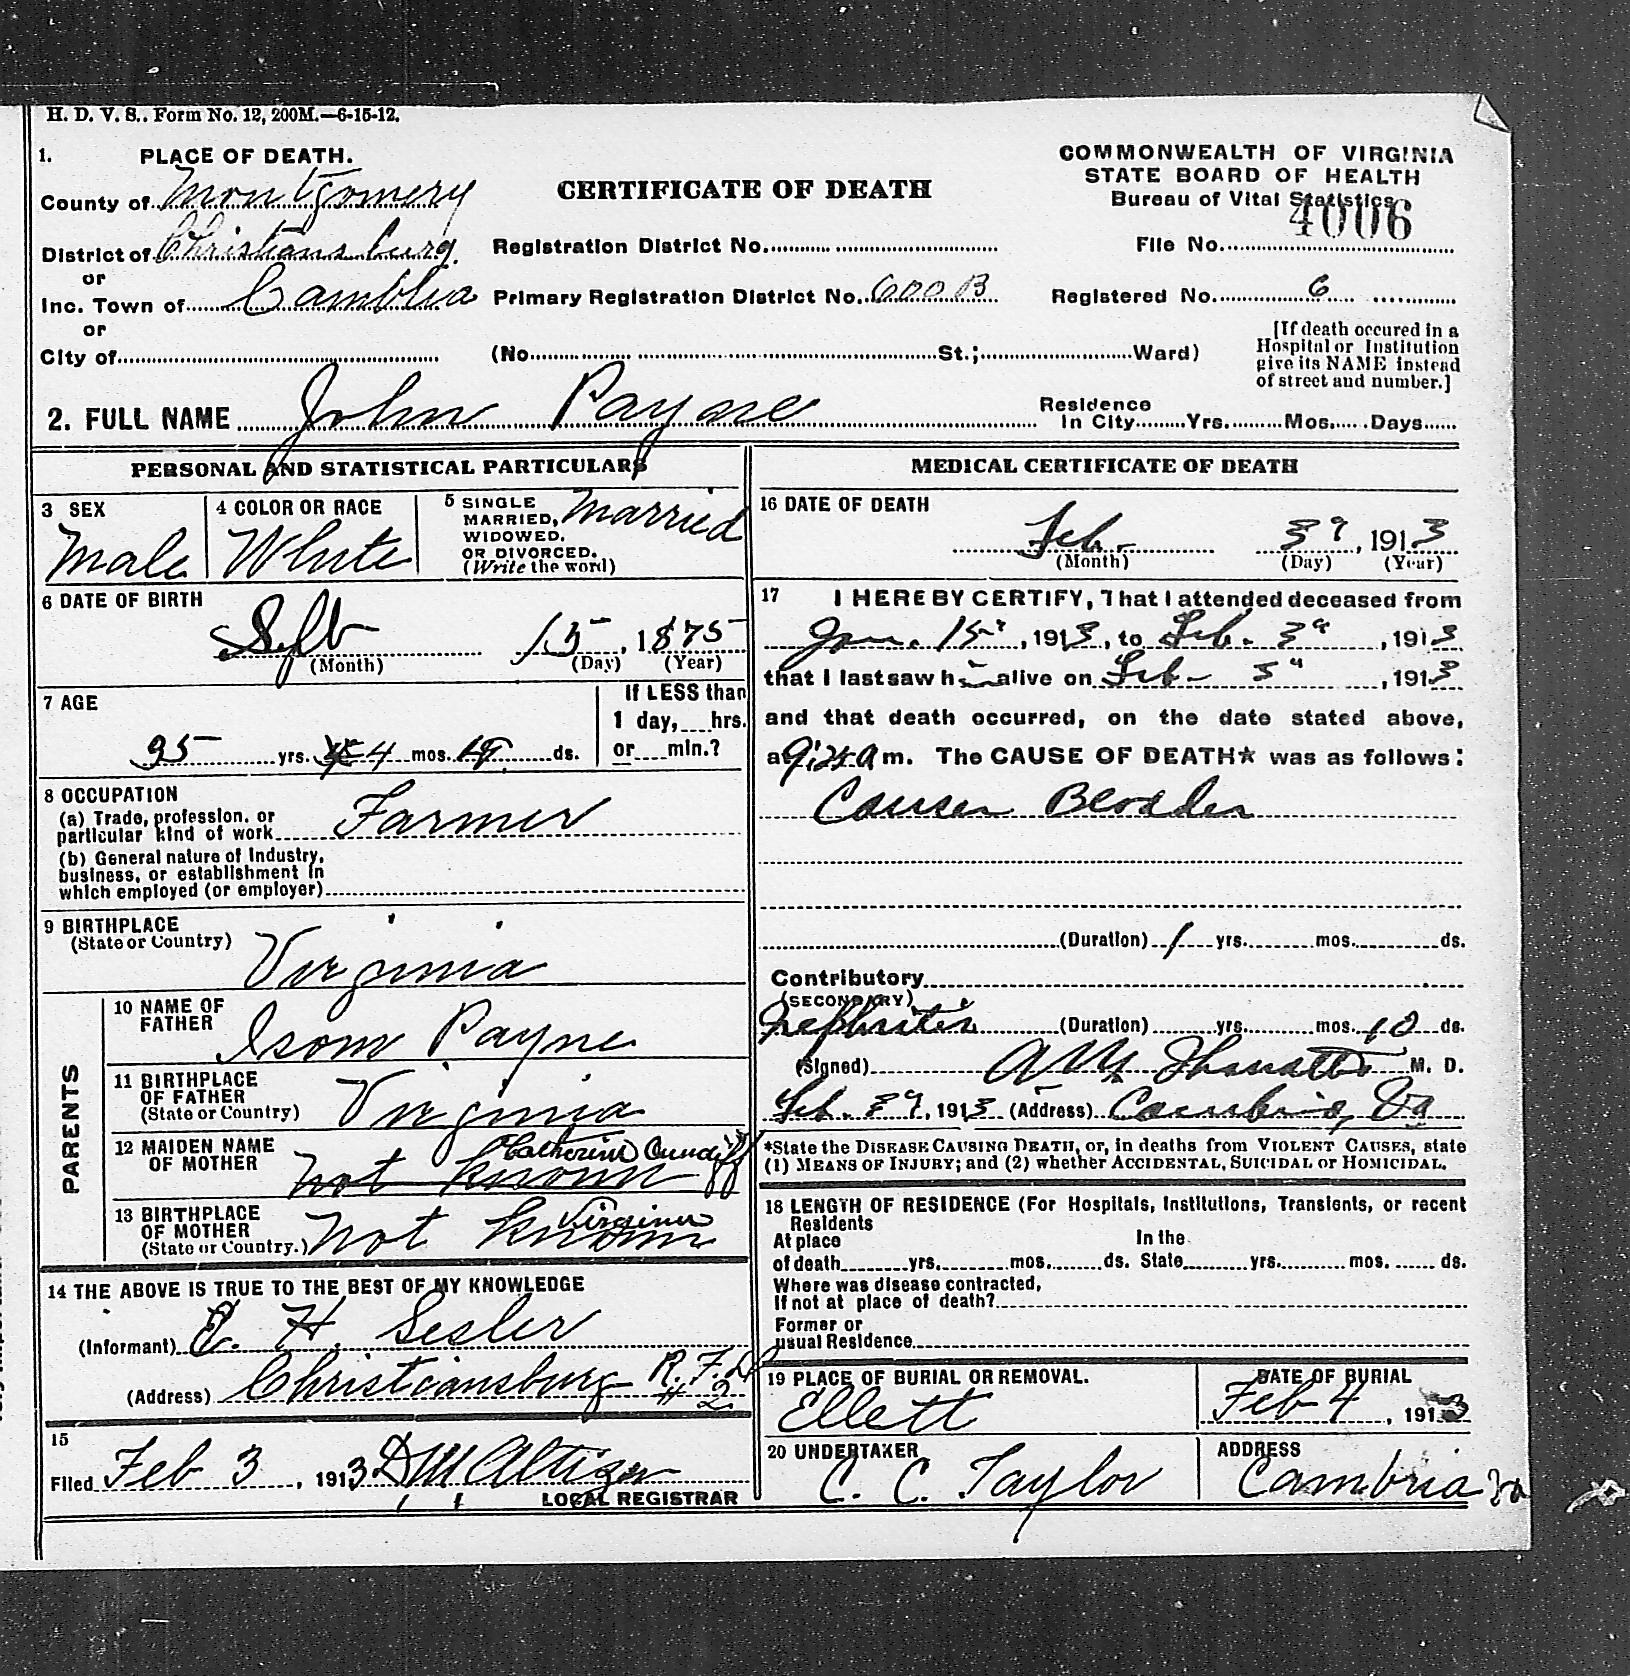 H. D. V. S.. Form No. 12, 200M.—6-15-12.
1. PLACE OF DEATH.
COMMONWEALTH OF VIRGINIA
STATE BOARD OF HEALTH
Bureau of Vital Statistics
County of Montgomery
CERTIFICATE OF DEATH
4006
District of Christiansburg.
Registration District No.
File No.
or
Inc. Town of Cambria
Primary Registration District No. 600 B
Registered No. 6
or
City of
(No. St.; Ward)
[If death occured in a
Hospital or Institution
give its NAME instead
of street and number.]
2. FULL NAME John Payne
Residence
In City Yrs. Mos. Days
PERSONAL AND STATISTICAL PARTICULARS
3 SEX
Male
4 COLOR OR RACE
White
5 SINGLE
MARRIED,
WIDOWED,
OR DIVORCED.
(Write the word)
Married
6 DATE OF BIRTH
15, 1875
(Month) (Day) (Year)
7 AGE
If LESS than
1 day, hrs.
or min.?
35 yrs. 4 mos. ds.
8 OCCUPATION
(a) Trade, profession. or
particular kind of work Farmer
(b) General nature of Industry,
business, or establishment in
which employed (or employer)
9 BIRTHPLACE
(State or Country)
Virginia
PARENTS
10 NAME OF
FATHER
Isom Payne
11 BIRTHPLACE
OF FATHER
(State or Country)
Virginia
12 MAIDEN NAME
OF MOTHER
Catherine Cundiff
not known
13 BIRTHPLACE
OF MOTHER
(State or Country.)
Virginia
not known
14 THE ABOVE IS TRUE TO THE BEST OF MY KNOWLEDGE
(Informant) E. H. Sesler
(Address) Christiansburg R. F. D
# 2
15
Filed Feb 3, 1913 D W Altizer
LOCAL REGISTRAR
MEDICAL CERTIFICATE OF DEATH
16 DATE OF DEATH
Feb. 3, 1913
(Month) (Day) (Year)
17 I HEREBY CERTIFY, That I attended deceased from
Jan. 1913, to Feb. 3, 1913
that I last saw h alive on Feb 3, 1913
and that death occurred, on the date stated above,
a m. The CAUSE OF DEATH* was as follows:
Cancer Bladder
(Duration) 1 yrs. mos. ds.
Contributory
(SECONDARY)
Nephritis (Duration) yrs. mos. 10 ds.
(Signed) M. D.
Feb. 3, 1913 (Address) Cambria, Va
*State the DISEASE CAUSING DEATH, or, in deaths from VIOLENT CAUSES, state
(1) MEANS OF INJURY; and (2) whether ACCIDENTAL, SUICIDAL or HOMICIDAL.
18 LENGTH OF RESIDENCE (For Hospitals, Institutions, Transients, or recent
Residents
At place
of death yrs. mos. ds.
In the
State yrs. mos. ds.
Where was disease contracted,
If not at place of death?
Former or
usual Residence
19 PLACE OF BURIAL OR REMOVAL.
Ellett
DATE OF BURIAL
Feb 4, 1913
20 UNDERTAKER
C. C. Taylor
ADDRESS
Cambria Va